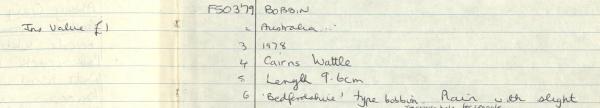 F50379 BOBBIN
Ins Value £1 2 Australia...
3 1978
4 Cairns Wattle
5 Length 9.6cm
6 'Bedfordshire' type bobbin. Plain with slight